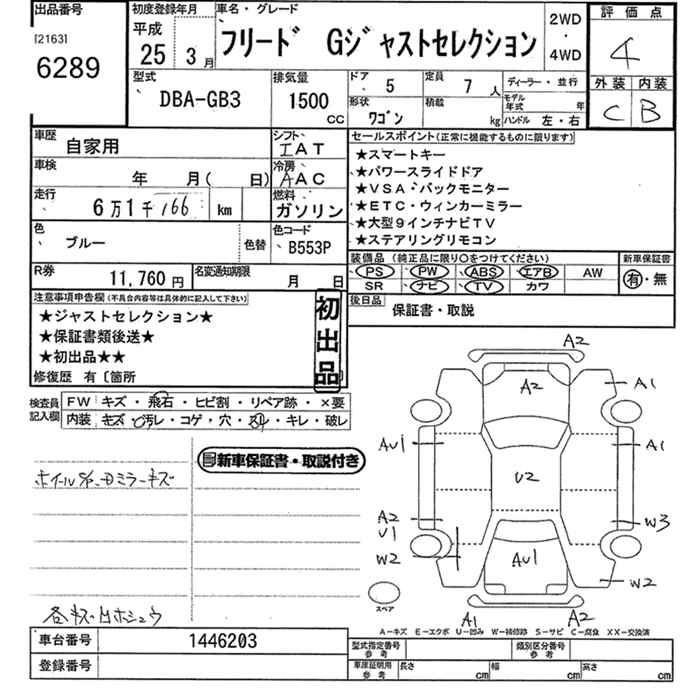 出品番号 初度登録年月 車名・グレード 2WD・4WD 評価点
[2163] 平成
6289 25 3月 フリード Gジャストセレクション 4
型式 排気量 ドア 5 定員 7人 ディーラー・並行 外装 内装
DBA-GB3 1500 CC 形状 ワゴン 積載 kg モデル年式 年 C B
ハンドル 左・右
車歴 自家用 シフト IAT セールスポイント(正常に機能するものに限ります)
★スマートキー
車検 年 月( 日) 冷房 AAC ★パワースライドドア
★VSA・バックモニター
走行 6万1千166 km 燃料 ガソリン ★ETC・ウィンカーミラー
★大型9インチナビTV
色 ブルー 色替 色コード B553P ★ステアリングリモコン
装備品(純正品に限り○をつけてください) 新車保証書
R券 11,760円 名変通知期限 月 日 PS PW ABS エアB AW 有・無
SR ナビ TV カワ
注意事項申告欄(不具合内容等は具体的に記入して下さい) 初出品 後日品 保証書・取説
★ジャストセレクション★
★保証書類後送★
★初出品★★
修復歴 有〔箇所 〕
検査員記入欄 FW キズ・飛石・ヒビ割・リペア跡・×要
内装 キズ・汚レ・コゲ・穴・剥レ・キレ・破レ
新車保証書・取説付き
A2
A2 A1
AU1 A1
U2
A2 U1 W3
W2 AU1 W2
スペア A1 A2
A-キズ E-エクボ U-凹み W-補修跡 S-サビ C-腐食 XX-交換済
車台番号 1446203 型式指定番号 参考 類別区分番号 参考
登録番号 車庫証明用 参考 長さ cm 幅 cm 高さ cm